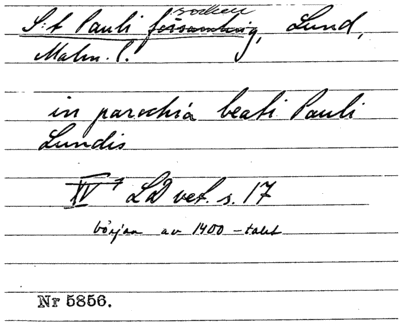 socken
S:t Pauli församling, Lund,
Malm. l.
in parochia beati Pauli
Lundis
IV 7 LD vet. s. 17
början av 1400-talet
Nr 5856.